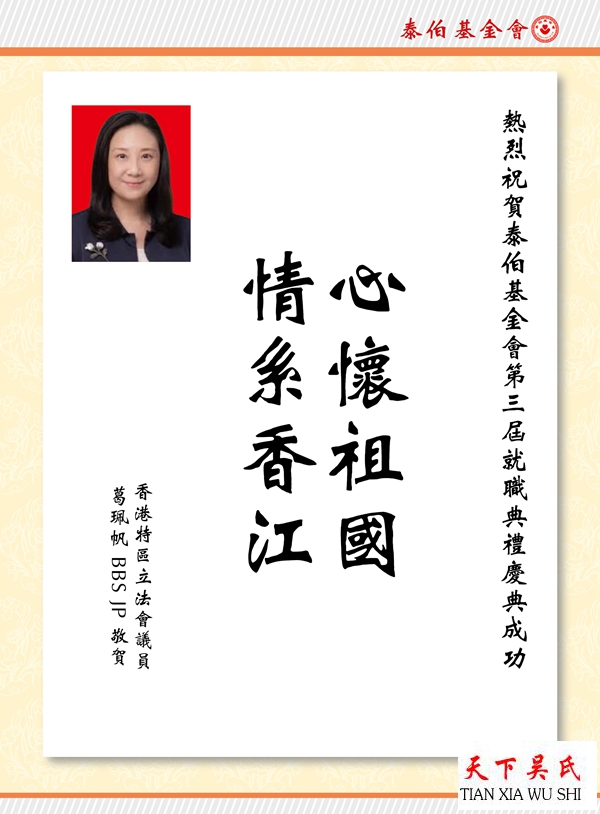 泰伯基金會
熱烈祝賀泰伯基金會第三屆就職典禮慶典成功
心懷祖國
情系香江
香港特區立法會議員
葛珮帆 BBS JP 敬賀
天下吴氏
TIAN XIA WU SHI